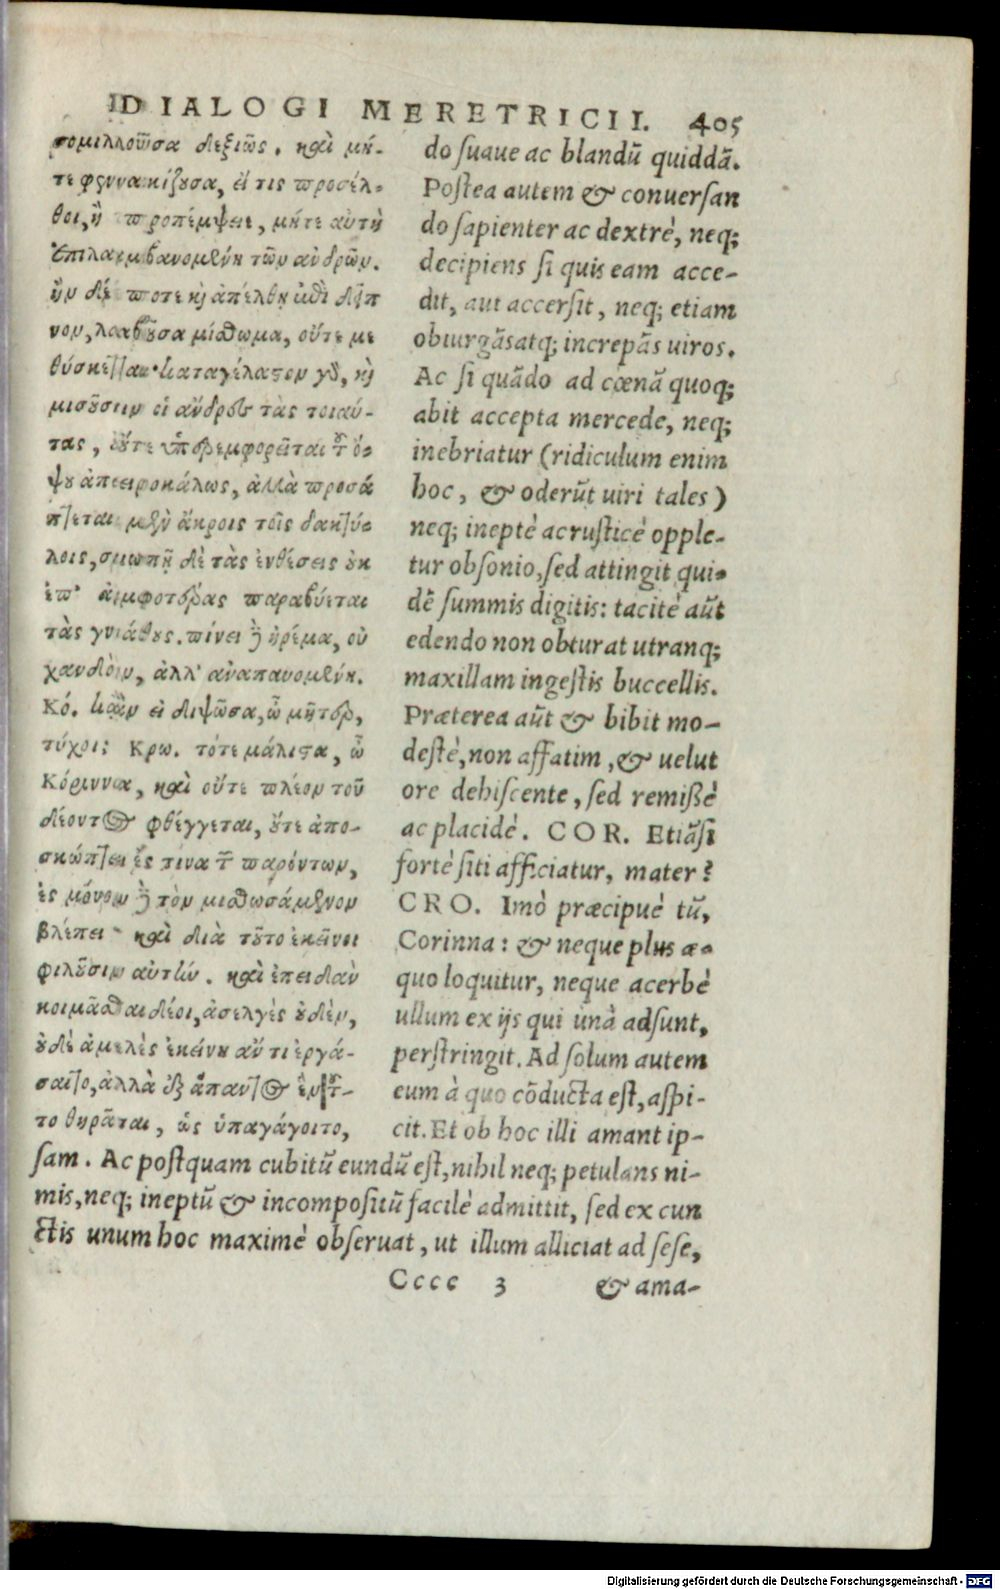 DIALOGI MERETRICII. 405
σομιλλοῦσα δεξιῶς. καὶ μή-
τε φενακίζουσα, εἴ τις προσέλ-
θοι, ἢ προπέμψει, μήτε αὐτὴ
ἐπιλαμβανομένη τῶν ἀνδρῶν.
ἢν δέ ποτε καὶ ἀπέλθη ἐπὶ δεῖπ
νον, λαβοῦσα μίσθωμα, οὔτε με
θύσκεται· καταγέλαστον γὰρ, καὶ
μισοῦσιν οἱ ἄνδρες τὰς τοιαύ-
τας, οὔτε ὑπερεμφορεῖται τοῦ ὄ-
ψου ἀπειροκάλως, ἀλλὰ προσά
πτεται μὲν ἄκροις τοῖς δακτύ-
λοις, σιωπῇ δὲ τὰς ἐνθέσεις οὐκ
ἐπ' ἀμφοτέρας παραβύεται
τὰς γνάθους. πίνει δὲ ἠρέμα, οὐ
χανδὸν, ἀλλ' ἀναπαυομένη.
Κό. κἂν εἰ διψῶσα, ὦ μῆτερ,
τύχοι; Κρω. τότε μάλιστα, ὦ
Κόριννα, καὶ οὔτε πλέον τοῦ
δέοντος φθέγγεται, οὔτε ἀπο-
σκώπτει ἔς τινα τῶν παρόντων,
ἐς μόνον δὲ τὸν μισθωσάμενον
βλέπει· καὶ διὰ τοῦτο ἐκεῖνοι
φιλοῦσιν αὐτήν. καὶ ἐπειδὰν
κοιμᾶσθαι δέοι, ἀσελγὲς οὐδὲν,
οὐδὲ ἀμελὲς ἐκείνη ἄν τι ἐργά-
σαιτο, ἀλλὰ ἐξ ἅπαντος ἓν τοῦ-
το θηρᾶται, ὡς ὑπαγάγοιτο,
do suaue ac blandũ quiddã.
Postea autem & conuersan
do sapienter ac dextrè, neq;
decipiens si quis eam acce-
dit, aut accersit, neq; etiam
obiurgãsatq; increpãs uiros.
Ac si quãdo ad cœnã quoq;
abit accepta mercede, neq;
inebriatur (ridiculum enim
hoc, & oderũt uiri tales)
neq; ineptè ac rusticè opple-
tur obsonio, sed attingit qui-
dẽ summis digitis: tacitè aũt
edendo non obturat utranq;
maxillam ingestis buccellis.
Præterea aũt & bibit mo-
destè, non affatim, & uelut
ore dehiscente, sed remißè
ac placidè. COR. Etiãsi
fortè siti afficiatur, mater?
CRO. Imò præcipuè tũ,
Corinna: & neque plus æ-
quo loquitur, neque acerbè
ullum ex ijs qui unà adsunt,
perstringit. Ad solum autem
eum à quo cõducta est, aspi-
cit. Et ob hoc illi amant ip-
sam. Ac postquam cubitũ eundũ est, nihil neq; petulans ni-
mis, neq; ineptũ & incompositũ facilè admittit, sed ex cun
ctis unum hoc maximè obseruat, ut illum alliciat ad sese,
Cccc 3 & ama-
Digitalisierung gefördert durch die Deutsche Forschungsgemeinschaft - DFG